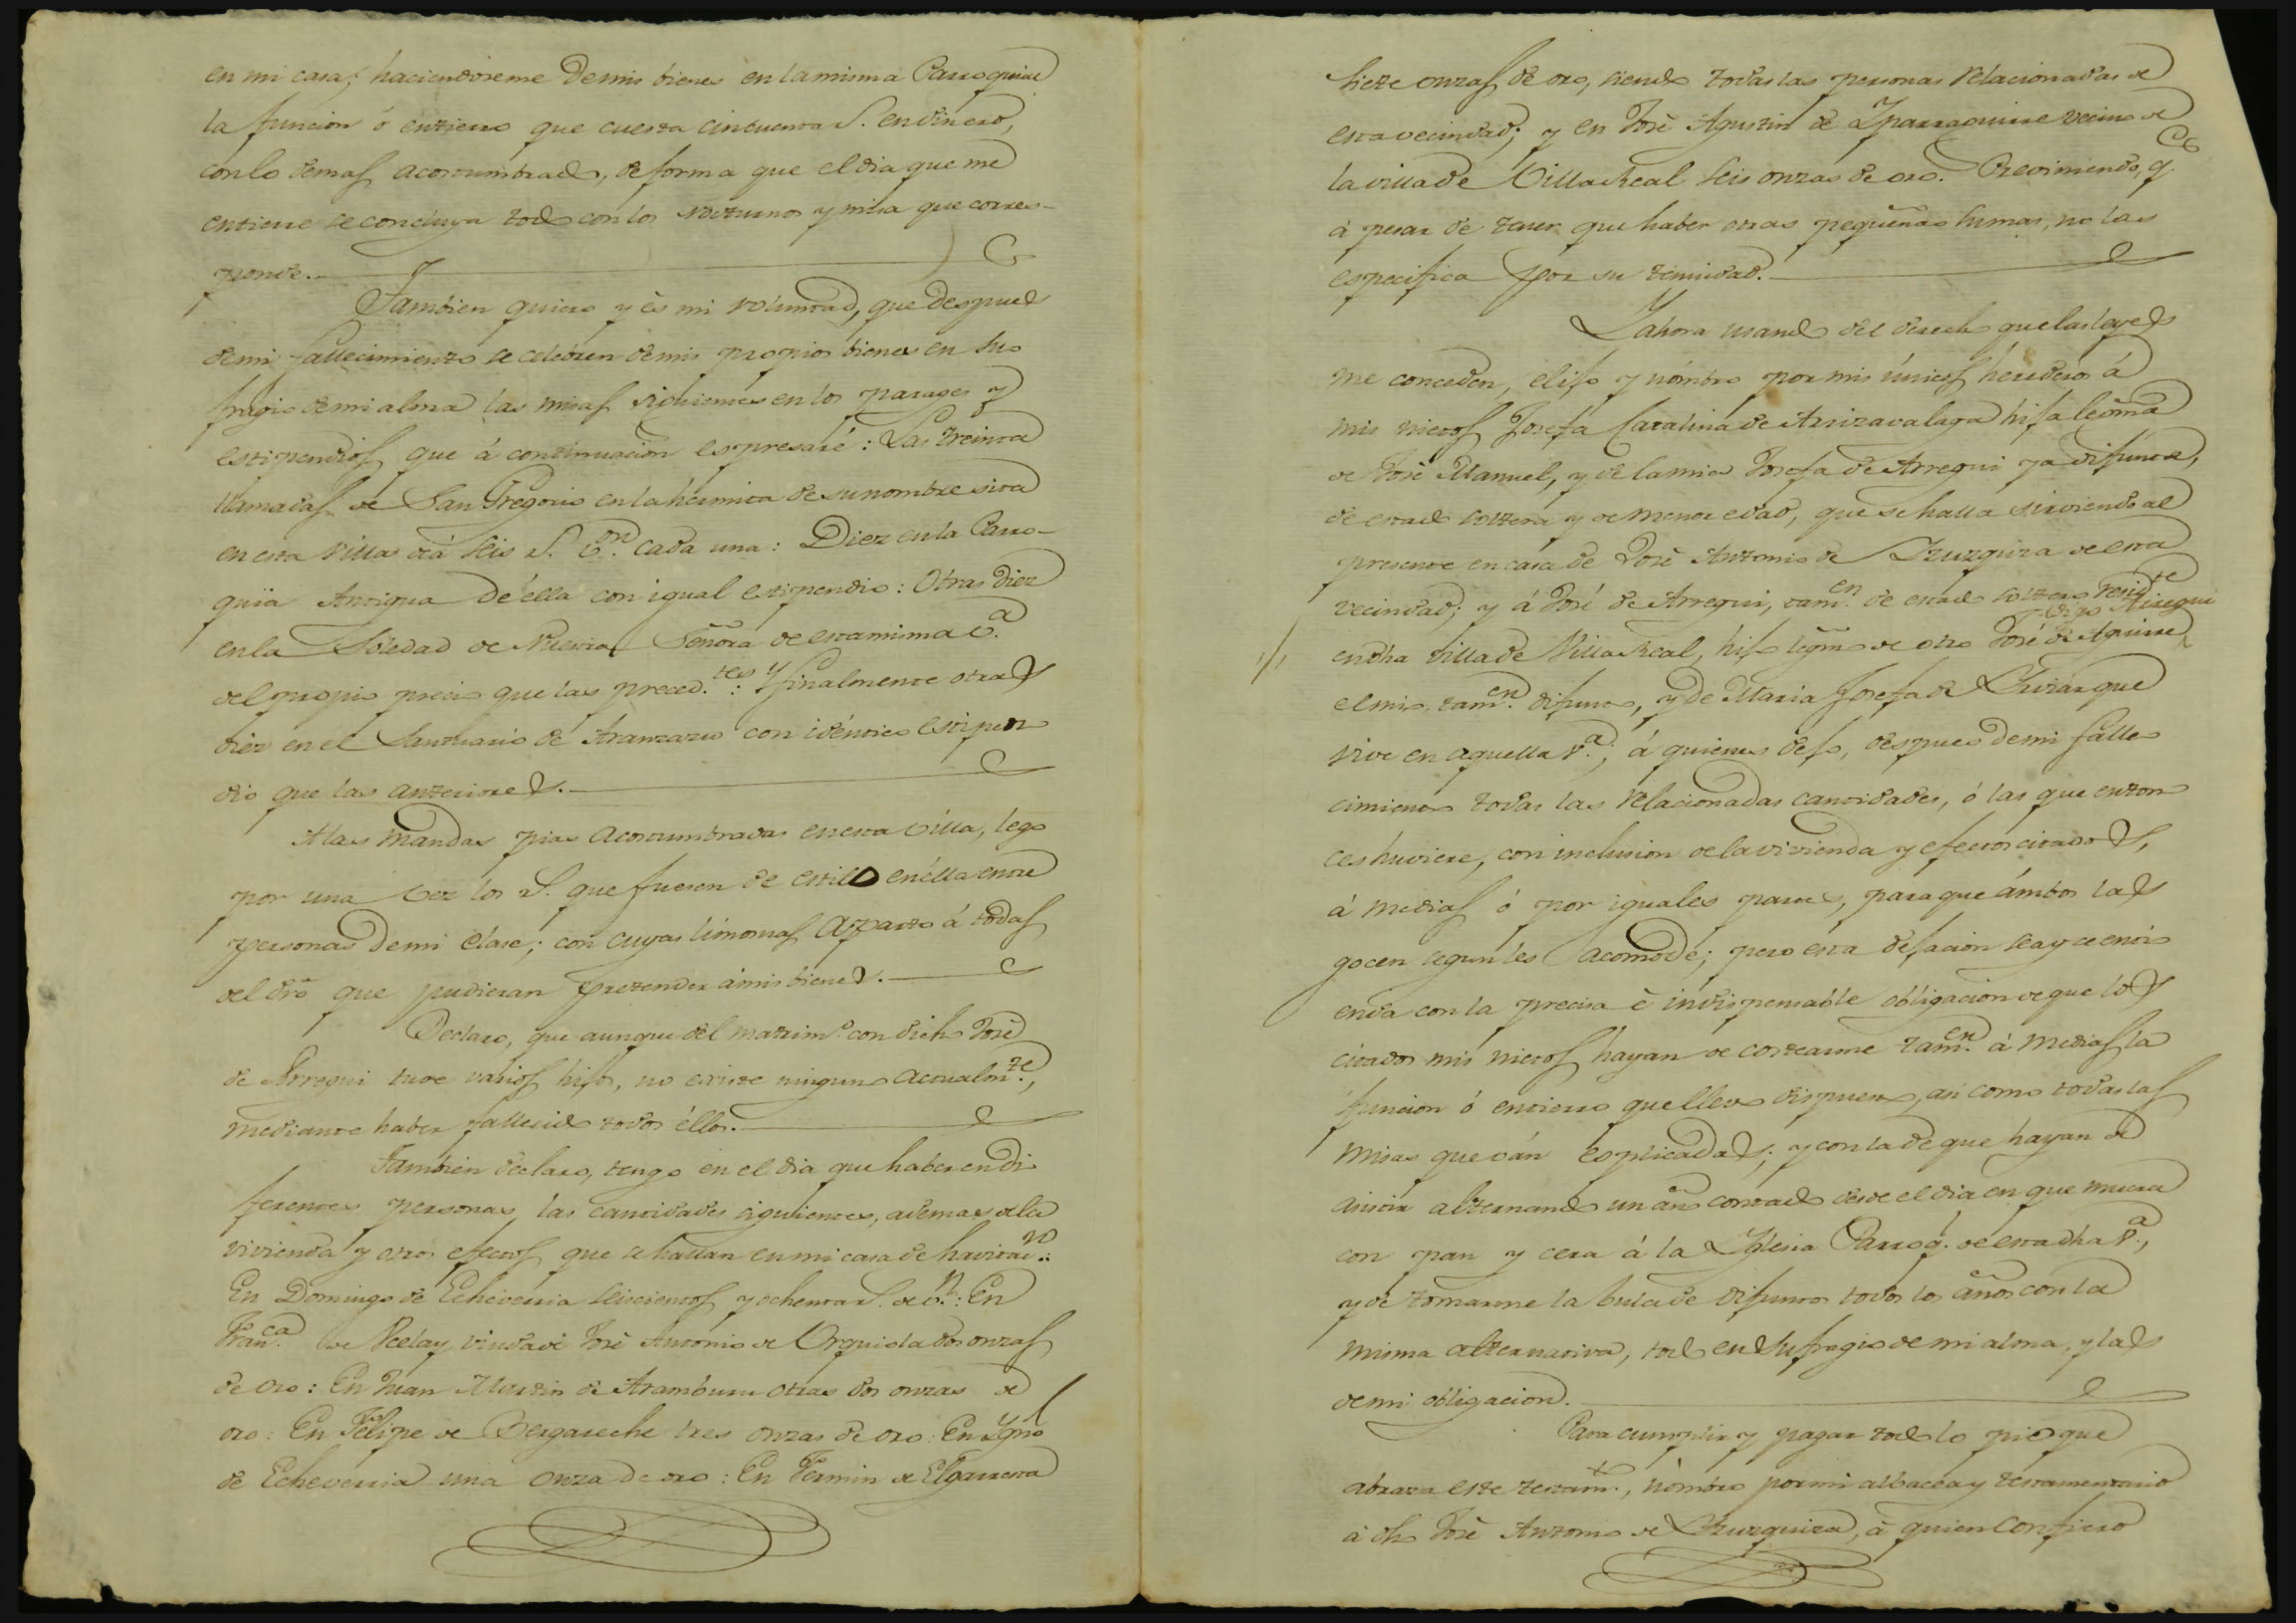 en mi casa; haciendoseme de mis bienes en la misma Parroquia
la funcion ó entierro que cuesta cincuenta S. en dinero,
con lo demas acostumbrado, de forma que el dia que me
entierre se concluya todo con los nocturnos y misa que corres-
ponde.
Tambien quiero y és mi voluntad, que despues
de mi fallecimiento se celebren de mis propios bienes en su
fragio de mi alma las misas siguientes en los parages y
estipendios que á continuacion espresaré: Las treinta
llamadas de San Gregorio en la hermita de su nombre sita
en esta Villa à seis S. v.n cada una: Diez en la Parro-
quia Antigua de élla con igual estipendio: Otras diez
en la Soledad de Nuestra Señora de esta misma v.a
del propio precio que las preced.tes: Y finalmente otras
diez en el Santuario de Aranzazu con idéntico estipen
dio que las anteriores.
A las mandas pias acostumbradas en esta villa, lego
por una vez los S. que fuesen de estilo en élla entre
personas de mi clase; con cuyas limosnas aparto á todas
del dro que pudieran pretender á mis bienes.
Declaro, que aunque del matrim.o con dicho José
de Arregui tuve varios hijos, no existe ninguno actualm.te,
mediante haber fallecido todos éllos.
Tambien declaro, tengo en el dia que haber en di
ferentes personas, las cantidades siguientes, ademas de la
vivienda y otros efectos que se hallan en mi casa de havitac.n:
En Domingo de Echeverria seiscientos y ochenta S. de v.n: En
Fran.ca de Ucelay viuda de José Antonio de Urquiola dos onzas
de oro: En Juan Martin de Aramburu otras dos onzas de
oro: En Felipe de Bergareche tres onzas de oro: En Ygn.o
de Echeverria una onza de oro: En Fermin de Elgarresta
siete onzas de oro, siendo todas las personas relacionadas de
esta vecindad; y en José Agustin de Yparraguirre vecino de
la villa de Villa Real seis onzas de oro. Previniendo, q.
á pesar de tener que haber otras pequeñas sumas, no las
especifica por su tenuidad.
Y ahora usando del derecho que las leyes
me conceden, elijo y nómbro por mis únicos herederos á
mis nietos Josefa Catalina de Arrizavalaga hija legma
de José Manuel, y de la mia Josefa de Arregui ya difunta,
de estado soltera y de menor edad, que se halla sirviendo al
presente en casa de José Antonio de Yzuzquiza de esta
vecindad; y á José de Arregui, tam.en de estado soltero resid.te
digo Arregui
en dha villa de Villa Real, hijo legmo de otro José de Aguirre
el mio tam.en difunto, y de Maria Josefa de que
vive en aquella v.a; á quienes dejo, despues de mi falle
cimiento todas las relacionadas cantidades, ó las que enton
ces huviere, con inclusion de la vivienda y efectos citados,
á medias ó por iguales partes, para que ámbos las
gocen segun les acomode; pero esta dejacion sea y se enti
enda con la precisa é indispensable obligacion de que los
citados mis nietos hayan de costearme tam.en á medias la
funcion ó entierro que llevo dispuesto, asi como todas las
misas que ván esplicadas; y con la de que hayan de
asistir alternando un año contado desde el dia en que muera
con pan y cera á la Yglesia Parroq.l de esta dha v.a,
y de tomarme la bula de difuntos todos los años con la
misma alternativa, todo en sufragio de mi alma, y las
de mi obligacion.
Para cumplir y pagar todo lo pio que
abraza este testam.to, nómbro por mi albacea y testamentario
á dho José Antonio de Yzuzquiza, á quien confiero